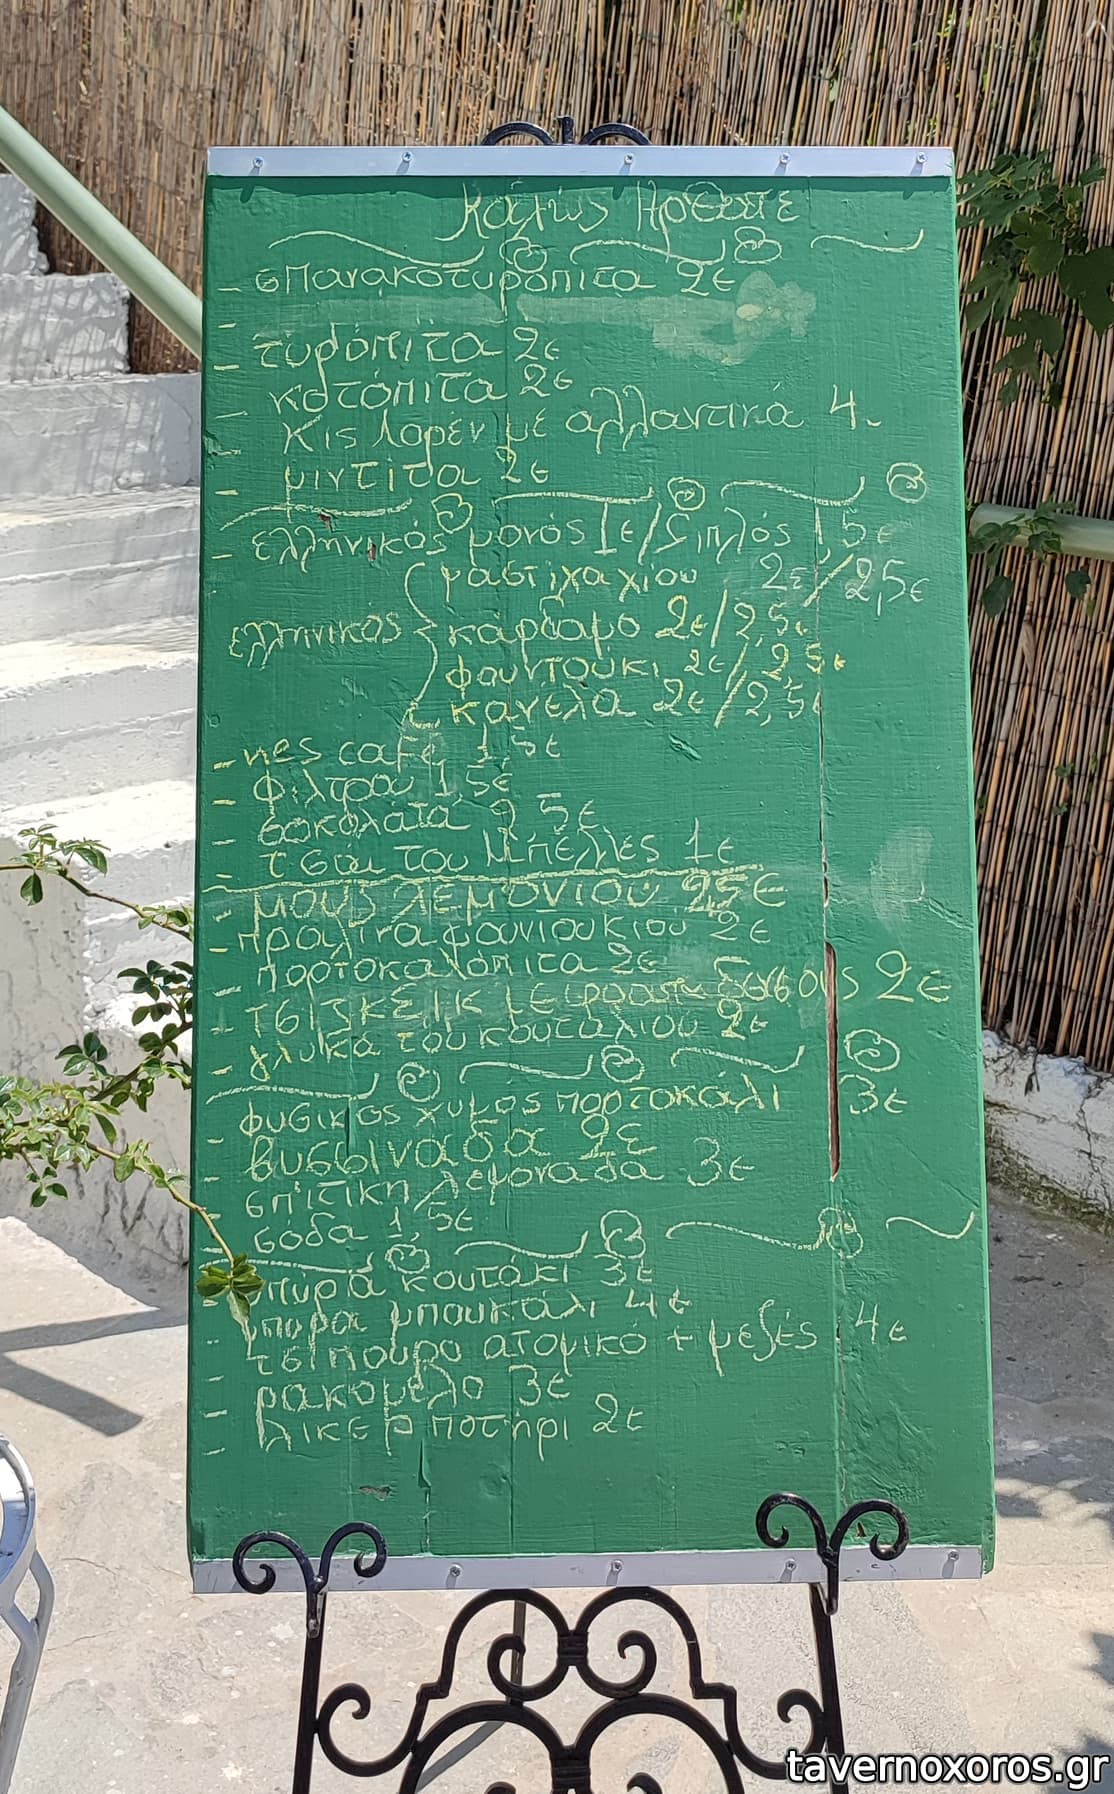 Καλώς Ηρθατε
- σπανακοτυρόπιτα 2€
- τυρόπιτα 2€
- κοτόπιτα 2€
- Κις Λορέν με αλλαντικά 4
- μιντίτσα 2€
- ελληνικός μονός 1€/διπλός 1,5€
μαστιχα χίου 2€/2,5€
ελληνικος κάρδαμο 2€/2,5€
φουντούκι 2€/2,5€
κανέλα 2€/2,5€
- nes cafe 1,5€
- φιλτρου 1,5€
- σοκολάτα 2,5€
- τσάι του Μπέλλες 1€
- μους λεμονιού 2,5€
- πραλίνα φουντουκιού 2€
- πορτοκαλόπιτα 2€
- τσιζκέικ 2€
- γλυκά του κουταλιού 2€
- φυσικος χυμος πορτοκάλι 3€
- βυσσιναδα 2€
- σπιτικη λεμοναδα 3€
- σόδα 1,5€
- μπύρα κουτακι 3€
- μπυρα μπουκάλι 4€
- τσιπουρο ατομικό + μεζές 4€
- ρακομελο 3€
- λικερ ποτηρι 2€
tavernoxoros.gr